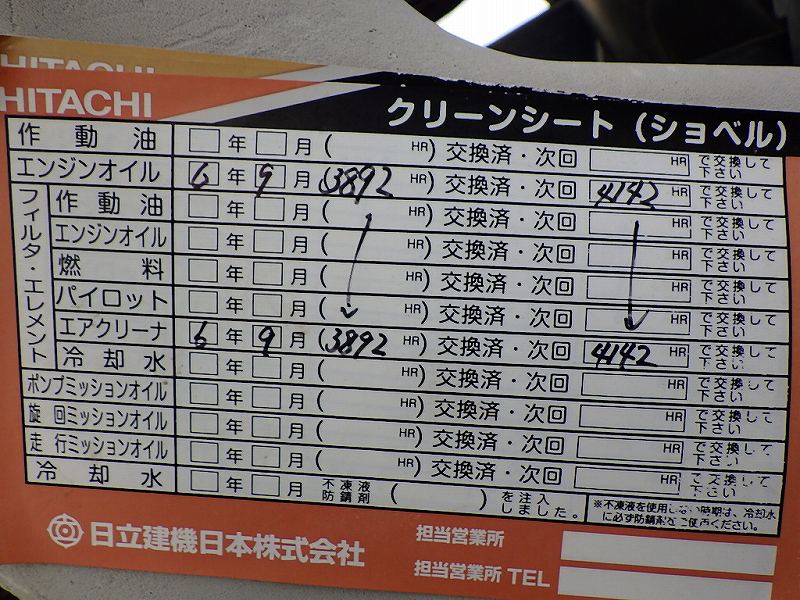 HITACHI
HITACHI
クリーンシート（ショベル）
作動油 年 月 ( HR) 交換済・次回 HR で交換して下さい
エンジンオイル 6年 9月 (3892 HR) 交換済・次回 4142 HR で交換して下さい
フィルタ・エレメント
作動油 年 月 ( HR) 交換済・次回 HR で交換して下さい
エンジンオイル 年 月 ( HR) 交換済・次回 HR で交換して下さい
燃料 年 月 ( HR) 交換済・次回 HR で交換して下さい
パイロット 年 月 ( HR) 交換済・次回 HR で交換して下さい
エアクリーナ 6年 9月 (3892 HR) 交換済・次回 4142 HR で交換して下さい
冷却水 年 月 ( HR) 交換済・次回 HR で交換して下さい
ポンプミッションオイル 年 月 ( HR) 交換済・次回 HR で交換して下さい
旋回ミッションオイル 年 月 ( HR) 交換済・次回 HR で交換して下さい
走行ミッションオイル 年 月 ( HR) 交換済・次回 HR で交換して下さい
冷却水 年 月 不凍液防錆剤 ( ) を注入しました。
※不凍液を使用しない時期は、冷却水
に必ず防錆剤をご使用ください。
日立建機日本株式会社
担当営業所
担当営業所 TEL